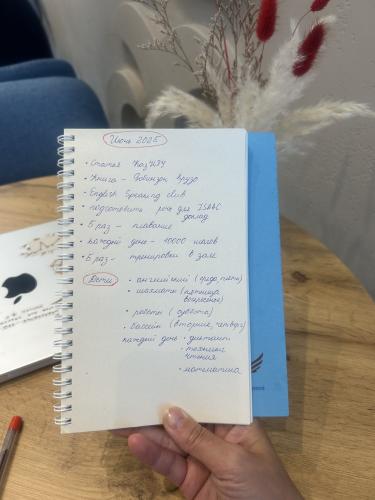 Июнь 2025
• Статья КазНПУ
• Книга - Робинзон Крузо
• English Speaking club
• подготовить речь для ISAAC
доклад
• 5 раз - плавание
• каждый день - 10000 шагов
• 5 раз - тренировки в зале
Дети
• английский (среда, пятн)
• шахматы (пятница
воскресенье)
• роботы (суббота)
• бассейн (вторник, четверг)
каждый день • диктант
• техника
чтения
• математика